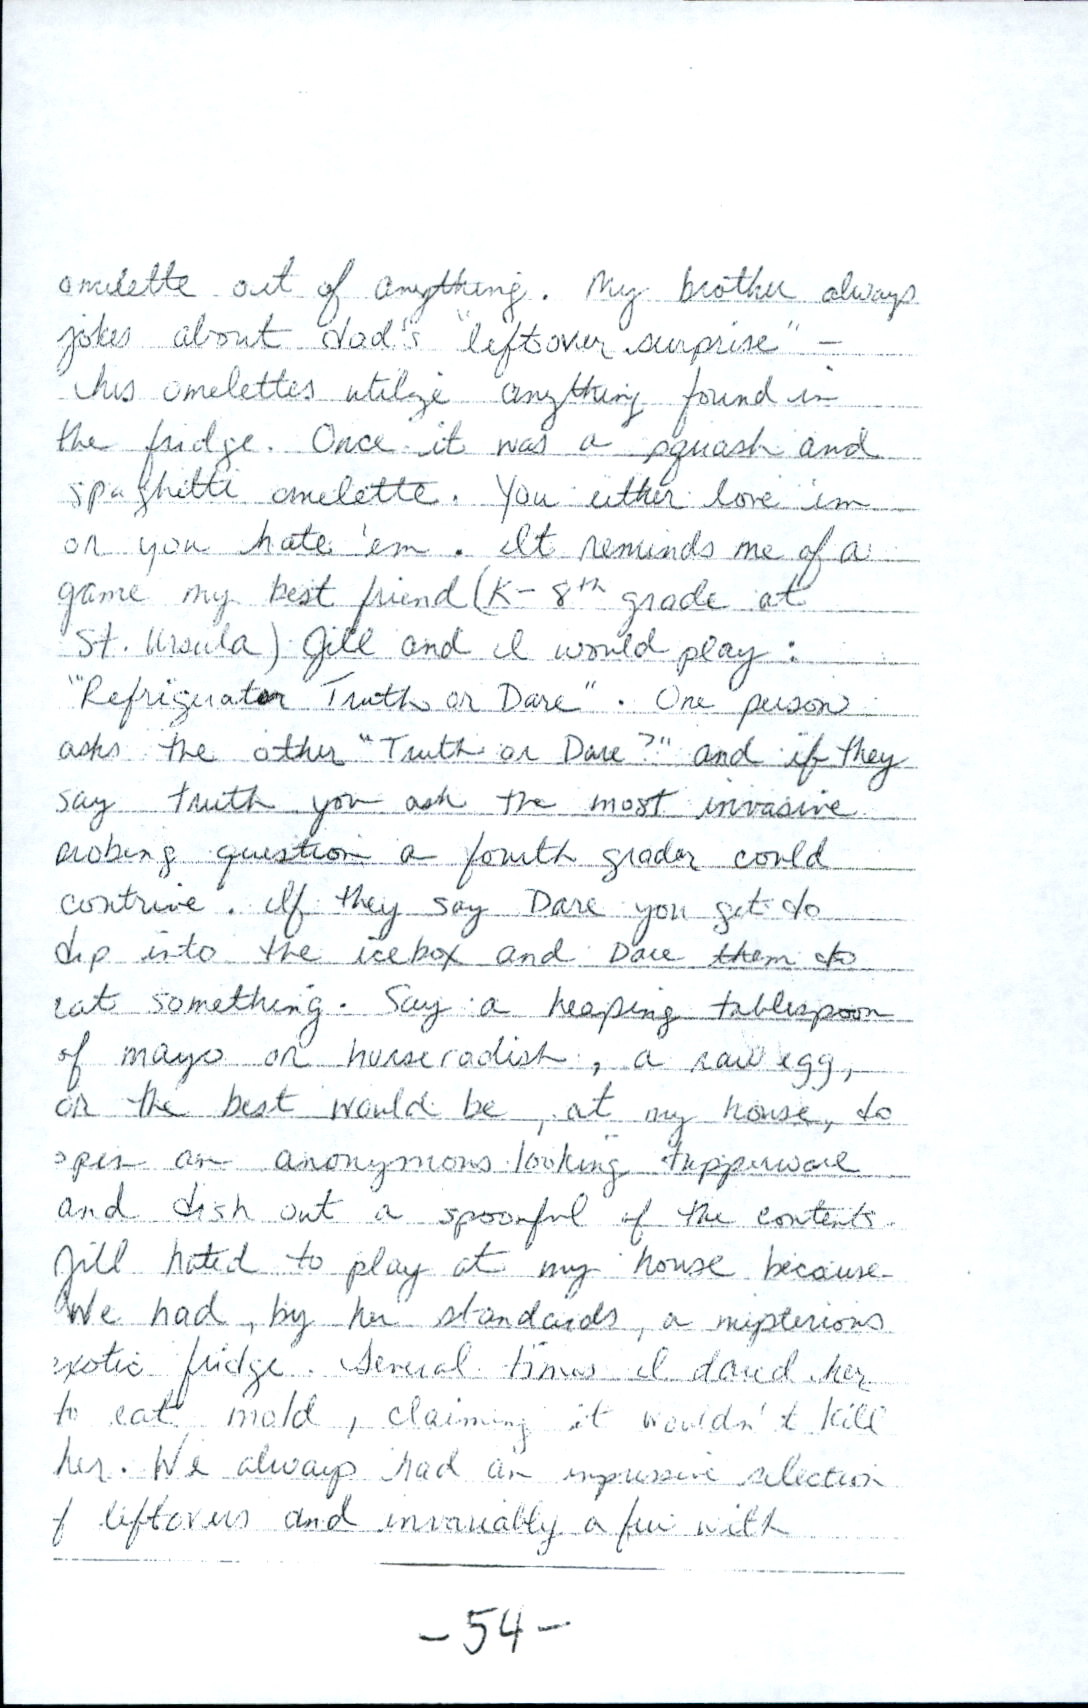 omelette out of anything. My brother always
jokes about dad's "leftover surprise" –
his omelettes utilize anything found in
the fridge. Once it was a squash and
spaghetti omelette. You either love 'em
or you hate 'em. It reminds me of a
game my best friend (K-8th grade at
St. Ursula) Jill and I would play:
"Refrigerator Truth or Dare". One person
asks the other "Truth or Dare?" and if they
say truth you ask the most invasive
probing question a fourth grader could
contrive. If they say Dare you get to
dip into the icebox and Dare them to
eat something. Say a heaping tablespoon
of mayo or horseradish, a raw egg,
or the best would be, at my house, to
open an anonymous looking tupperware
and dish out a spoonful of the contents.
Jill hated to play at my house because
We had, by her standards, a mysterious
exotic fridge. Several times I dared her
to eat mold, claiming it wouldn't kill
her. We always had an impressive selection
of leftovers and invariably a few with
-54-